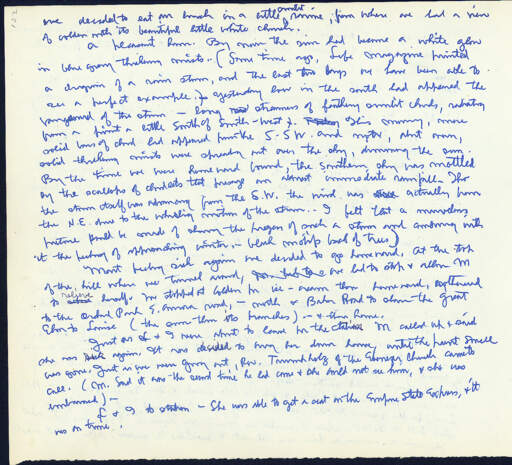 we decided to eat our lunch in a little ravine, from where we had a view
of Colden with its beautiful little white church.
A pleasant hour. By noon the sun had become a white glow
in blue gray thickening mists. (Some time ago, Life magazine printed
a diagram of a rain storm, and the last two days we have been able to
see a perfect example. yesterday low in the south had appeared the
vanguard of the storm - long streamers of feathery cloud, radiating
from a point a little South of South-West. This morning, more
solid lines of cloud had appeared from the S.S.W. and now, about noon,
solid thickening mists were spreading out over the sky, dimming the sun.
By the time we were homeward bound, the southern sky was mottled
by the scallops of clouds that presage an almost immediate rainfall. Tho
the storm itself was advancing from the S.W. the wind was actually from
the N.E. due to the whirling motion of the storm.. I felt that a marvelous
picture could be made of showing the progress of such a storm and combining with
it the feeling of approaching winter - bleak mood of trees)
Mart feeling sick again we decided to go homeward, At the top
of the hill where we turned around, we had to stop & allow M
to relieve herself. We stopped at Colden for ice-cream then homeward,
to the Orchard Park E. Aurora road, - north & Baker Road to show the Great
Elm to Louise (the sun thru the branches) - & then home.
Just as & I were about to leave for the M called up & said
she was sick again. It was decided to bring her down home, until the
was gone. Just as we were going out, Rev. of the Church came to
call. (M. said it was the second time he had come & she could not see him, & she was
embarrassed) -
& I to station - She was able to get a seat on the Empire State Express, & it
was on time.